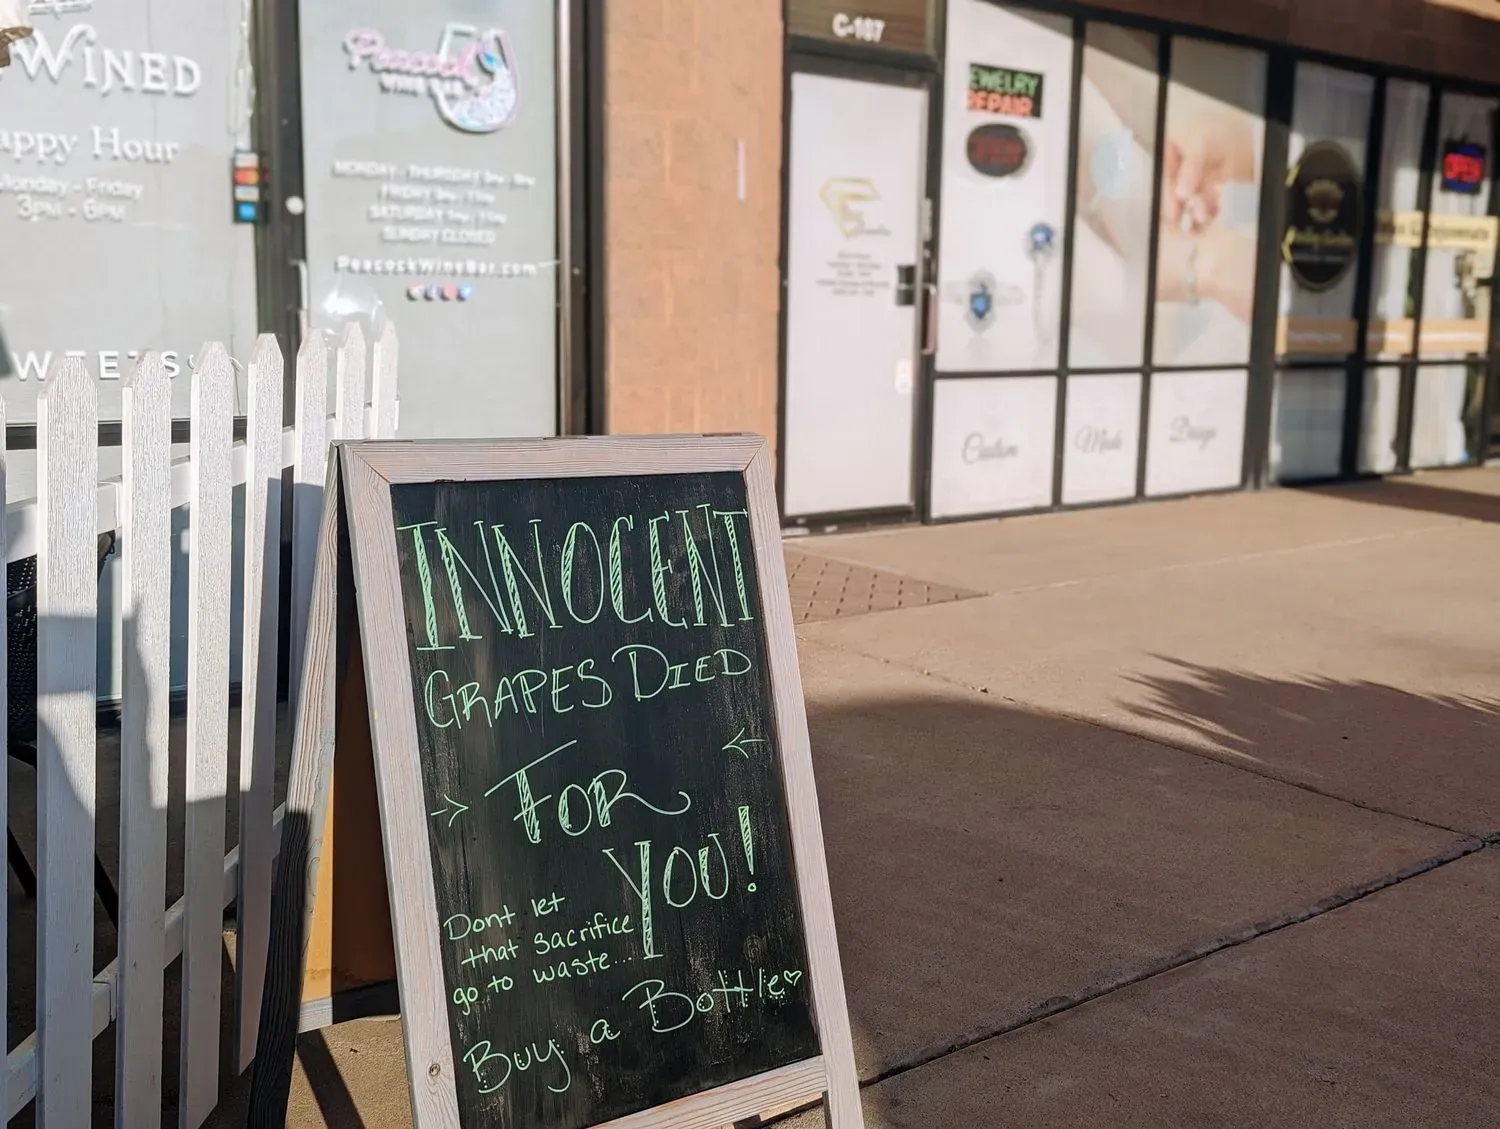 WINED
appy Hour
Monday - Friday
3PM - 6PM
WEETS
Peacock
WINE BAR
MONDAY - THURSDAY
FRIDAY
SATURDAY
SUNDAY CLOSED
PeacockWineBar.com
C-187
EWELRY
REPAIR
OPEN
Custom
Made
Design
INNOCENT
GRAPES DIED
←
→ FOR
YOU!
Dont let
that sacrifice
go to waste...
Buy a Bottle♡